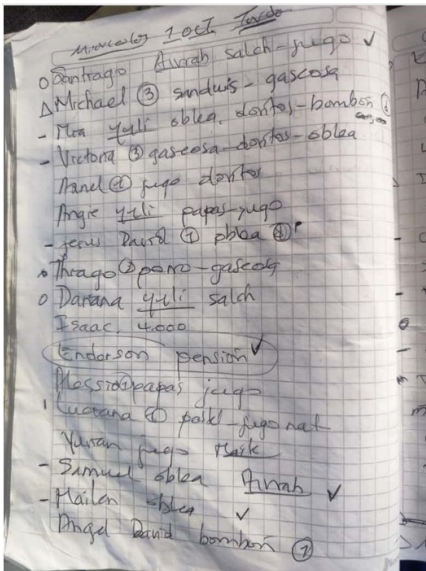 Miercoles 1 oct Tarde
Santiago Avrah salch-jugo ✓
Michael ③ sanduis - gascosa
- Mia yuli oblea. doritos-bombon
- Victoria ③ gaseosa-doritos-oblea
① jugo doritos
Angie yuli papas-jugo
- Jesus David ① oblea ①
Thiago ② - gaseosa
Danana yuli salch
Isaac. 4.000
Enderson pension ✓
Messi ① papas jugo
Luciana ① - jugo nat
jugo
- Samuel oblea Avrah ✓
- Mailen oblea ✓
Angel David bombon ①